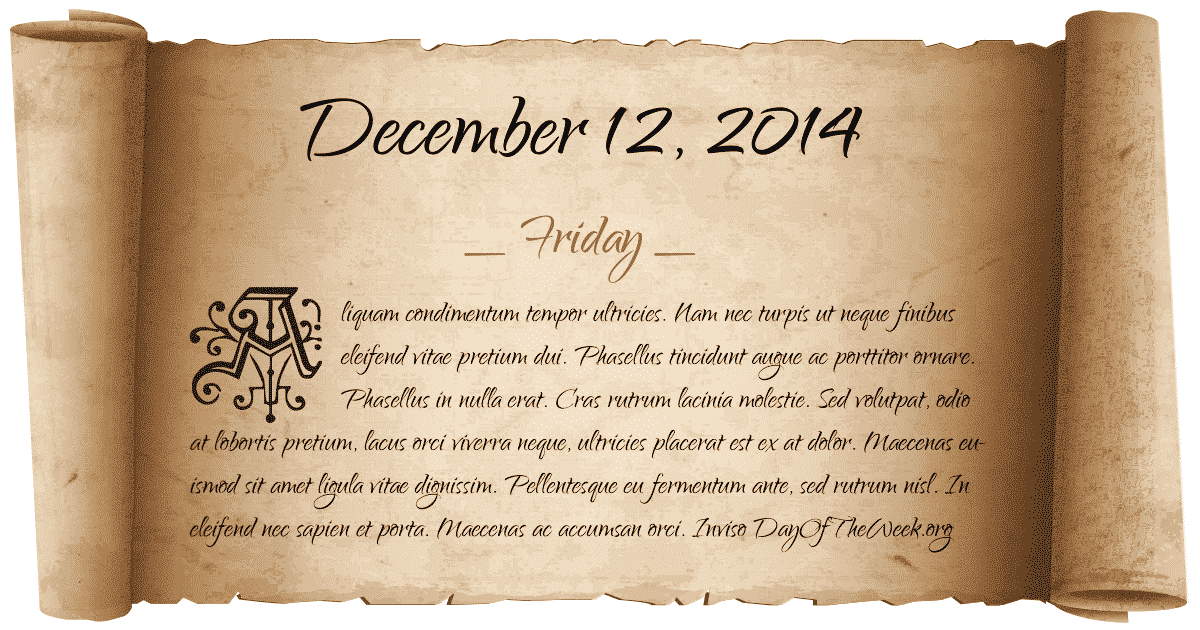 December 12, 2014
— Friday —
Aliquam condimentum tempor ultricies. Nam nec turpis ut neque finibus
eleifend vitae pretium dui. Phasellus tincidunt augue ac porttitor ornare.
Phasellus in nulla erat. Cras rutrum lacinia molestie. Sed volutpat, odio
at lobortis pretium, lacus orci viverra neque, ultricies placerat est ex at dolor. Maecenas eu-
ismod sit amet ligula vitae dignissim. Pellentesque eu fermentum ante, sed rutrum nisl. In
eleifend nec sapien et porta. Maecenas ac accumsan orci. Inviso DayOfTheWeek.org